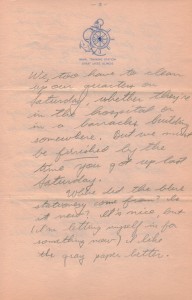 - 2 -
We, too have to clean
up our quarters on
Saturday, whether they're
in the hospital or
in a barracks building
somewhere. But we must
be finished by the
time you got up last
Saturday.
Where did the blue
stationery come from? Is
it new? It's nice, but
(I'm letting myself in for
something now) I like
the gray paper better.